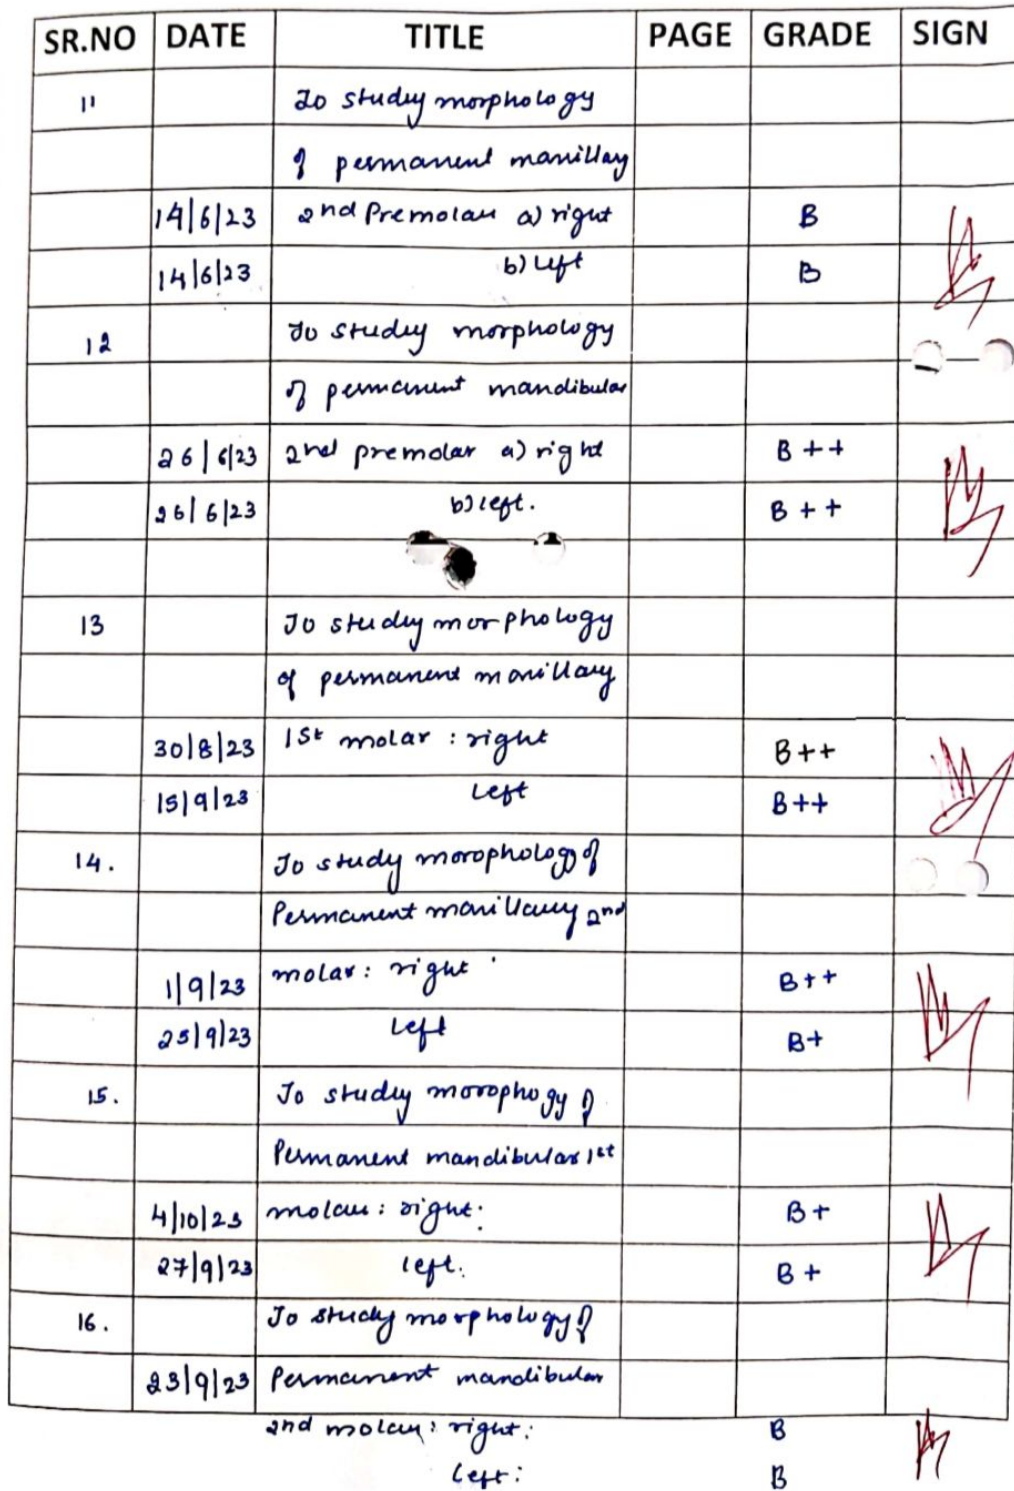 SR.NO DATE TITLE PAGE GRADE SIGN
11 To study morphology
of permanent manillay
14/6/23 2nd Premolar a) right B
14/6/23 b) left B
12 To study morphology
of permanent mandibular
26/6/23 2nd premolar a) right B ++
26/6/23 b) left. B ++
13 To study morphology
of permanent manillary
30/8/23 1st molar : right B++
15/9/23 left B++
14. To study morophology of
Permanent manillary 2nd
1/9/23 molar : right B++
25/9/23 left B+
15. To study morophogy of
Permanent mandibular 1st
4/10/23 molar : right: B+
27/9/23 left. B+
16. To study morphology of
23/9/23 Permanent mandibular
2nd molar : right: B
left: B